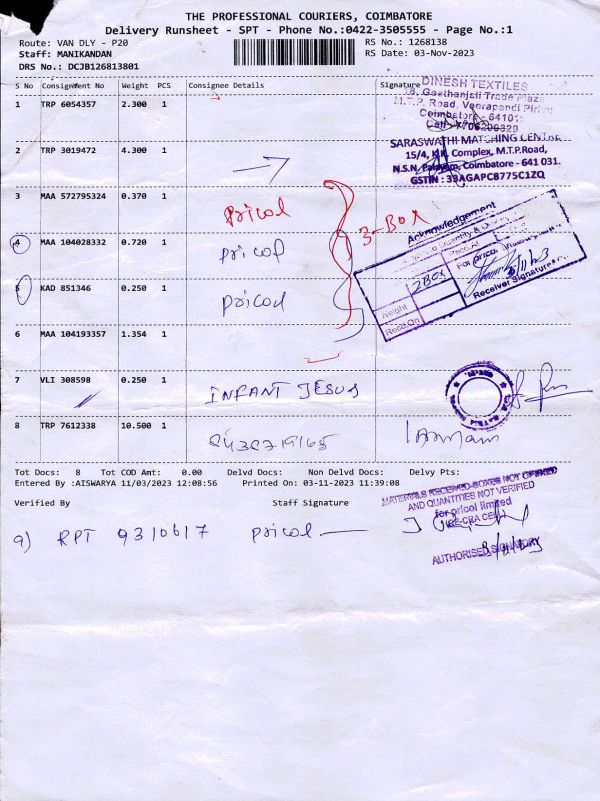 THE PROFESSIONAL COURIERS, COIMBATORE
Delivery Runsheet - SPT - Phone No.:0422-3505555 - Page No.:1
Route: VAN DLY - P20
RS No.: 1268138
Staff: MANIKANDAN
RS Date: 03-Nov-2023
DRS No.: DCJB126813801
S No Consignment No Weight PCS Consignee Details Signature
DINESH TEXTILES
Geethanjali Trade Plaza
M.T.P. Road, Veerapandi
Coimbatore - 64101
1 TRP 6054357 2.300 1
SARASWATHI MATCHING CENTRE
2 TRP 3019472 4.300 1
15/4, Complex, M.T.P.Road,
N.S.N. Palayam, Coimbatore - 641 031.
GSTIN : 33AGAPC8775C1ZQ
3 MAA 572795324 0.370 1 pricol
3-BOX
Acknowledgement
4 MAA 104028332 0.720 1 pricol
5 KAD 851346 0.250 1 pricol
2BOX
For pricol
Receiver Signature
Weight
Recd.On
6 MAA 104193357 1.354 1
7 VLI 308598 0.250 1 INFANT JESUS
8 TRP 7612338 10.500 1
Tot Docs: 8 Tot COD Amt: 0.00 Delvd Docs: Non Delvd Docs: Delvy Pts:
Entered By :AISWARYA 11/03/2023 12:08:56 Printed On: 03-11-2023 11:39:08
Verified By Staff Signature
MATERIALS RECEIVED-BOXES NOT OPENED
AND QUANTITIES NOT VERIFIED
for pricol limited
9) RPT 9310617 pricol
AUTHORISED SIGNATORY